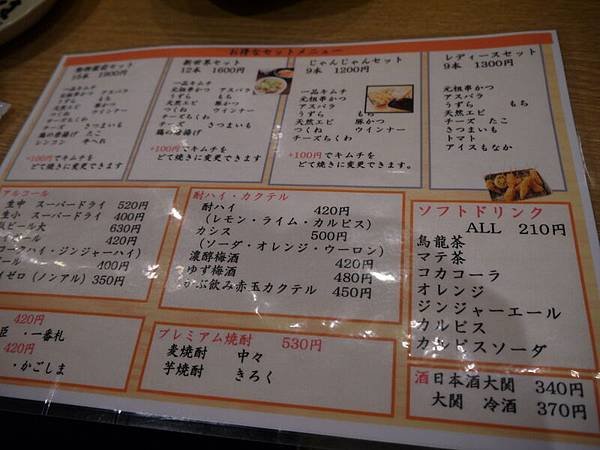 お得なセットメニュー
動物園前セット
15本 1900円
一品キムチ
元祖串かつ アスパラ
うずら もち
天然エビ 豚かつ
つくね ウインナー
チーズちくわ
チーズ さつまいも
鶏の唐揚げ たこ
レンコン キャベ
+100円でキムチを
どて焼きに変更できます
新世界セット
12本 1600円
一品キムチ
元祖串かつ アスパラ
うずら もち
天然エビ 豚かつ
つくね ウインナー
チーズちくわ
チーズ さつまいも
鶏の唐揚げ
+100円でキムチを
どて焼きに変更できます
じゃんじゃんセット
9本 1200円
一品キムチ
元祖串かつ
アスパラ
うずら もち
天然エビ 豚かつ
つくね ウインナー
チーズちくわ
+100円でキムチを
どて焼きに変更できます。
レディースセット
9本 1300円
元祖串かつ
アスパラ
うずら もち
天然エビ
チーズ たこ
さつまいも
トマト
アイスもなか
アルコール
生中 スーパードライ 520円
生小 スーパードライ 400円
ビール大 630円
420円
コーク・ジンジャーハイ)
400円
ゼロ(ノンアル) 350円
酎ハイ・カクテル
酎ハイ 420円
(レモン・ライム・カルピス)
カシス 500円
(ソーダ・オレンジ・ウーロン)
濃醇梅酒 420円
ゆず梅酒 480円
がぶ飲み赤玉カクテル 450円
ソフトドリンク
ALL 210円
烏龍茶
マテ茶
コカコーラ
オレンジ
ジンジャーエール
カルピス
カルピスソーダ
420円
・一番札
420円
・かごしま
プレミアム焼酎 530円
麦焼酎 中々
芋焼酎 きろく
酒 日本酒大関 340円
大関 冷酒 370円